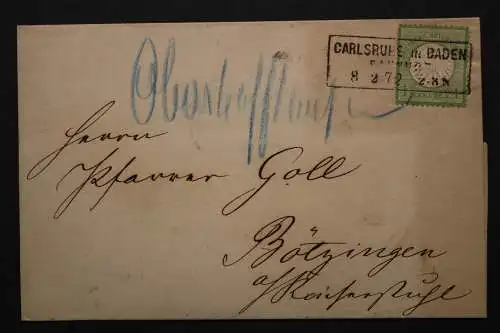 CARLSRUHE in BADEN
BAHNHOF
8 2 72 2-8N
Herrn
Pfarrer Goll
Bötzingen
a/Kaiserstuhl